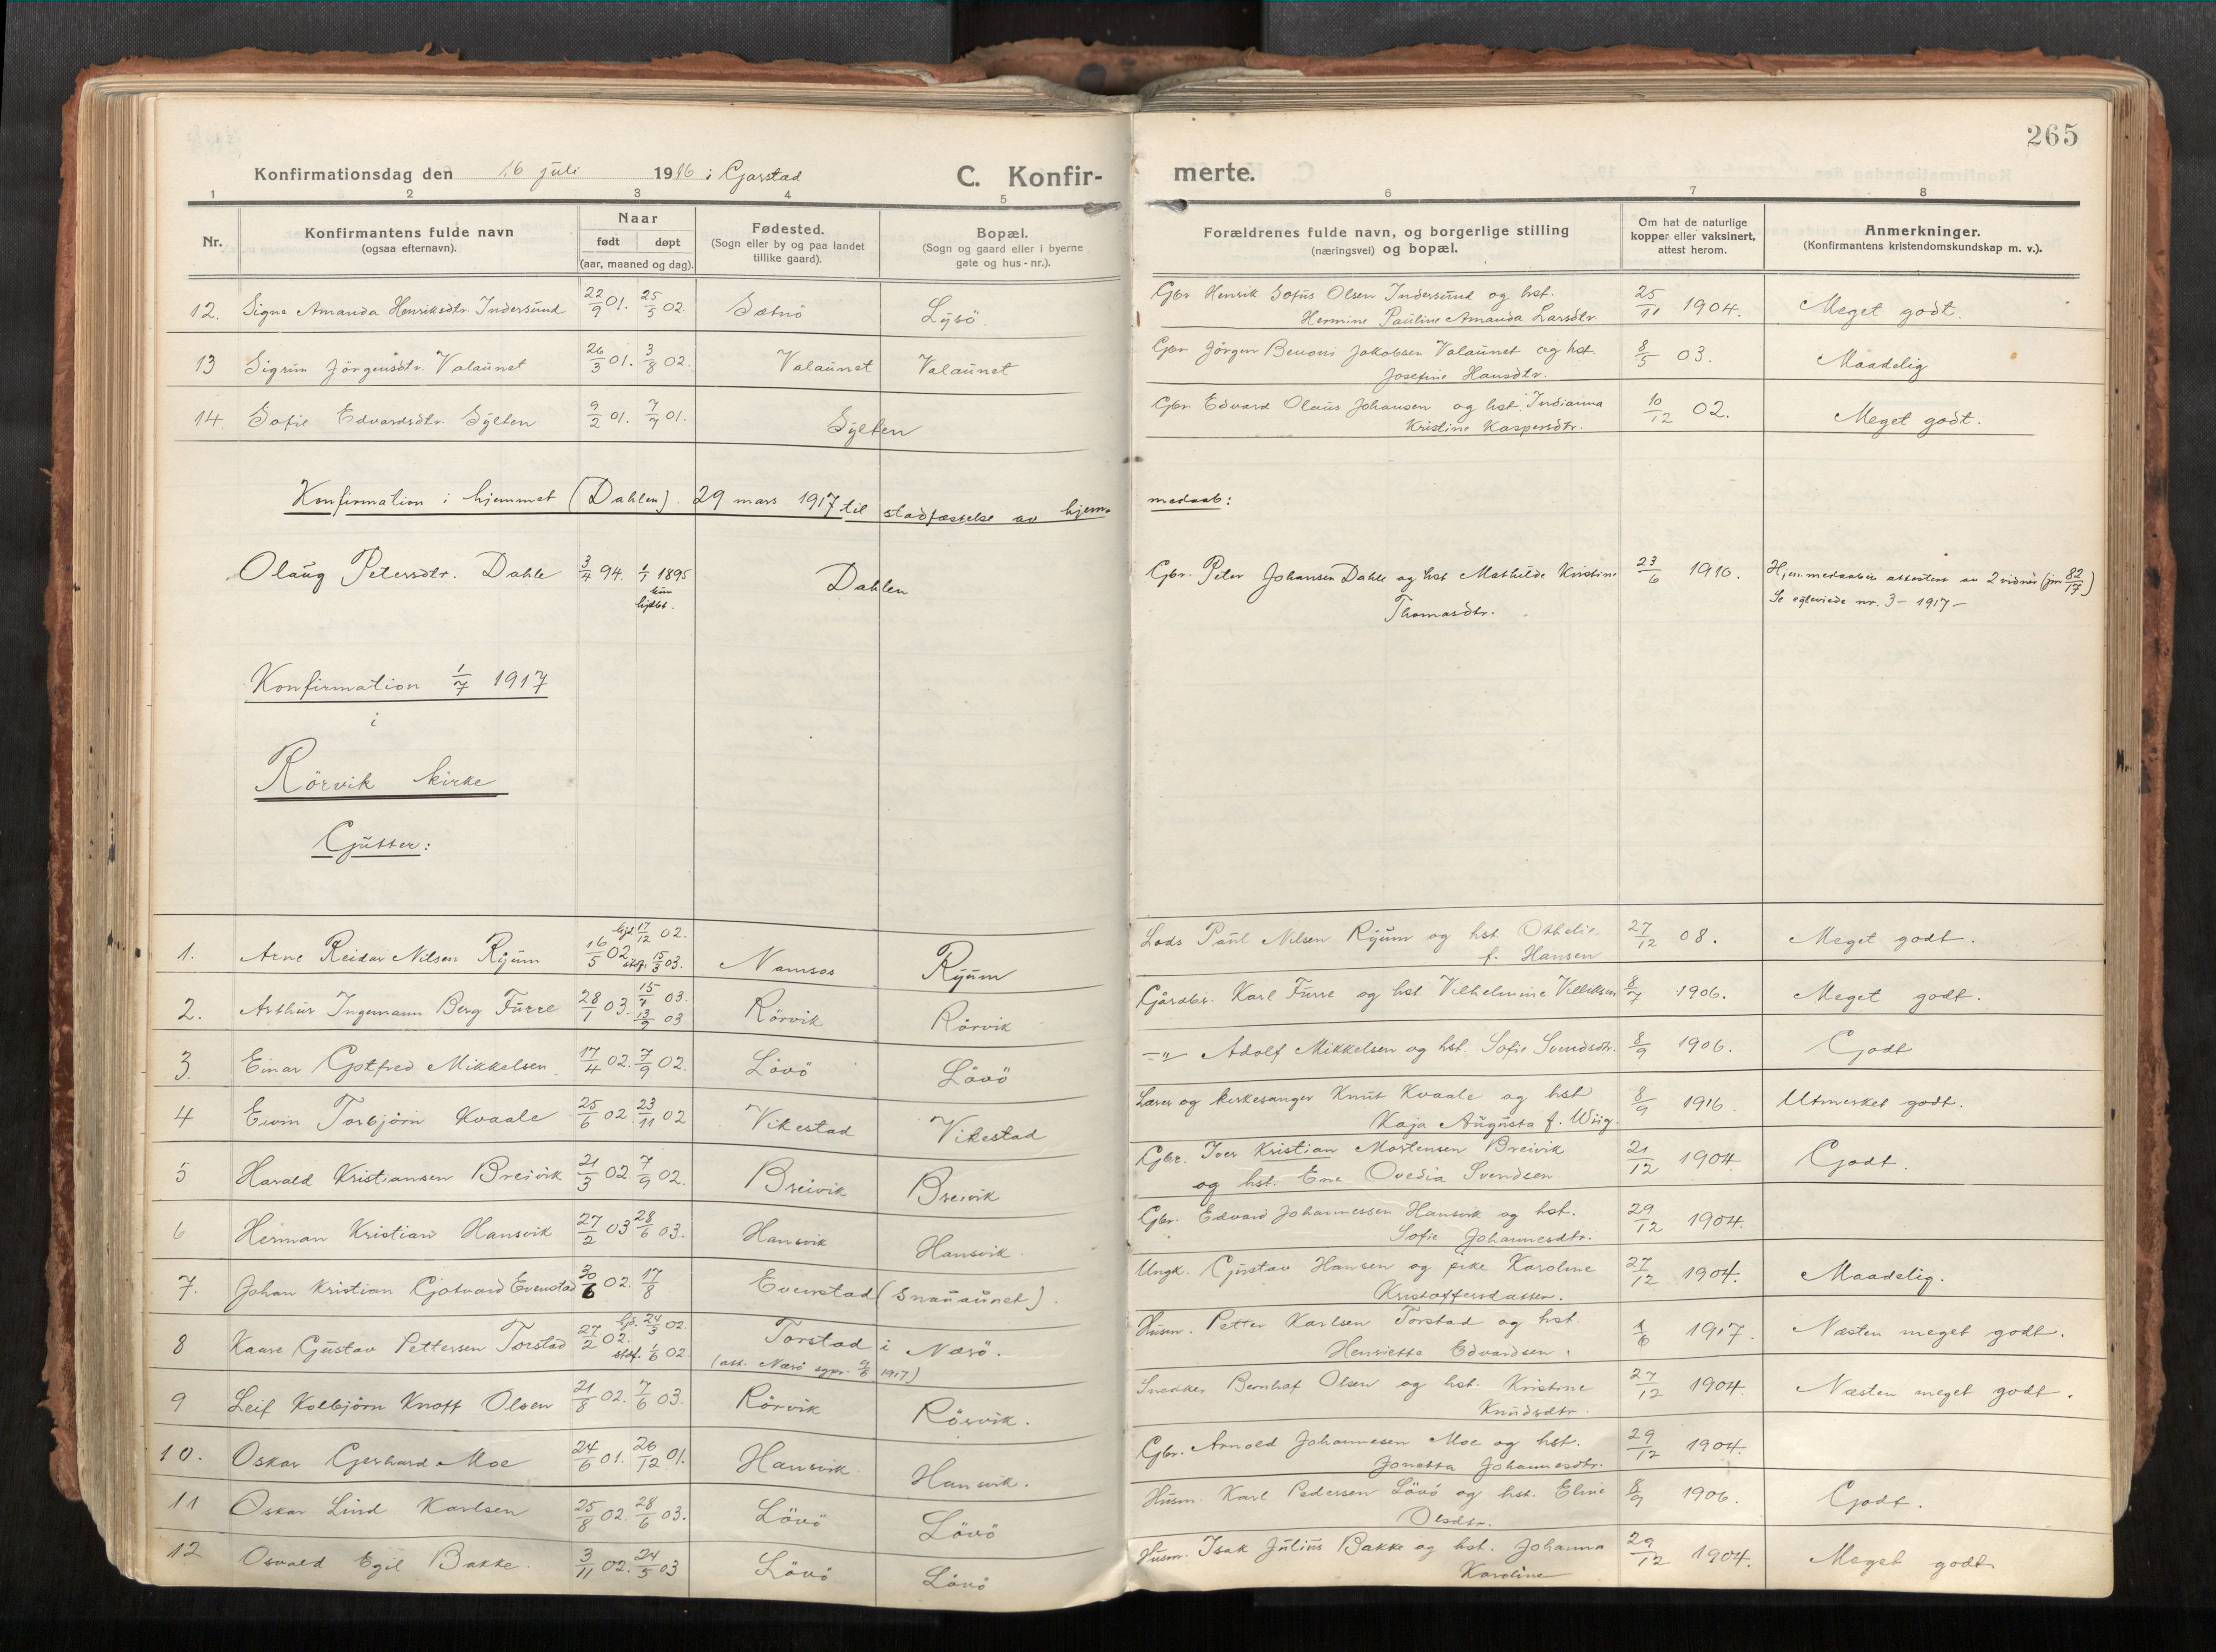 265
Konfirmationsdag den 16 juli 1916 i Garstad C. Konfir- merte.
1 2 3 4 5 6 7 8
Nr. Konfirmantens fulde navn (ogsaa efternavn). Naar født døpt (aar, maaned og dag). Fødested. (Sogn eller by og paa landet tillike gaard). Bopæl. (Sogn og gaard eller i byerne gate og hus-nr.). Forældrenes fulde navn, og borgerlige stilling (næringsvei) og bopæl. Om hat de naturlige kopper eller vaksinert, attest herom. Anmerkninger. (Konfirmantens kristendomskundskap m. v.).
12. Signe Amanda Henriksdtr. Indersund 22/9 01. 25/5 02 Sætnö Lysö. Gbr Henrik Sofus Olsen Indersund og hst. 25/11 1904. Meget godt.
Hermine Pauline Amanda Larsdtr.
13 Sigrun Jörgensdtr. Valaunet 26/3 01. 3/8 02. Valaunet Valaunet Gbr Jörgen Benoni Jakobsen Valaunet og hst. 8/5 03. Maadelig
Josefine Hansdtr.
14. Sofie Edvardsdtr. Sylten 9/2 01. 7/7 01. Sylten Gbr. Edvard Olaus Johansen og hst. Indianna 10/12 02. Meget godt.
Kristine Kaspersdtr.
Konfirmation i hjemmet (Dahlen) 29 mars 1917 til stadfæstelse av hjem- medaab:
Olaug Petersdtr. Dahle 3/4 94. 1/1 1895 Dahlen Gbr. Peter Johansen Dahle og hst Mathilde Kristine 23/6 1910. Hjemmedaaben attestert av 2 vidner (jnr 82/17)
hjdbt. Thomasdtr. Se egteviede nr. 3 - 1917 -
Konfirmation 1/7 1917
i
Rörvik kirke
Gutter:
1. Arne Reidar Nilsen Ryum 16/5 02 hjd 17/12 02. stf. 15/3 03. Namsos Ryum Lods Paul Nilsen Ryum og hst. Othelie 27/12 08. Meget godt.
f. Hansen
2. Arthur Ingemann Berg Furre 28/1 03. 15/4 03. 13/9 03 Rörvik Rörvik Gårdbr. Karl Furre og hst. Vilhelmine Villiksen 8/7 1906. Meget godt.
3. Einar Gotfred Mikkelsen 17/4 02. 7/9 02. Lövö Lövö -"- Adolf Mikkelsen og hst. Sofie Svendsdtr. 8/9 1906. Godt
4 Eivin Torbjörn Kvaale 25/6 02 23/11 02 Vikestad Vikestad Lærer og kirkesanger Knut Kvaale og hst 8/9 1916. Utmerket godt.
Kaja Augusta f. Wiig.
5 Harald Kristiansen Breivik 21/3 02. 7/9 02. Breivik Breivik Gbr. Iver Kristian Mortensen Breivik 21/12 1904 Godt.
og hst. Ene Ovedia Svendsen
6 Herman Kristian Hansvik 27/2 03 28/6 03. Hansvik Hansvik. Gbr. Edvard Johannessen Hansvik og hst. 29/12 1904.
Sofie Johannesdtr.
7. Johan Kristian Gotvard Evenstad 30/6 02. 17/8 Evenstad (Snauaunet). Ungk. Gustav Hansen og pike Karoline 27/12 1904. Maadelig.
Kristoffersdatter.
8 Kaare Gustav Pettersen Torstad 27/2 02. hjd. 24/3 02. stdf. 1/6 02 Torstad i Nærö. Husm. Petter Karlsen Torstad og hst. 1/6 1917. Næsten meget godt.
(att. Nærö sgpr. 1917) Henriette Edvardsen.
9 Leif Kolbjörn Knoff Olsen 21/8 02. 7/6 03. Rörvik Rörvik. Snedker Bernhof Olsen og hst. Kristine 27/12 1904. Næsten meget godt.
Knudsdtr.
10. Oskar Gerhard Moe 24/6 01. 26/12 01. Hansvik Hansvik. Gbr. Arnold Johannesen Moe og hst. 29/12 1904.
Jonetta Johannesdtr.
11 Oskar Lind Karlsen 25/8 02. 28/6 03. Lövö Lövö Husm. Karl Pedersen Lövö og hst. Eline 8/9 1906. Godt.
Olsdtr.
12 Osvald Egil Bakke. 3/11 02. 24/5 03 Lövö Lövö Husm. Isak Julius Bakke og hst. Johanna 29/12 1904. Meget godt
Karoline